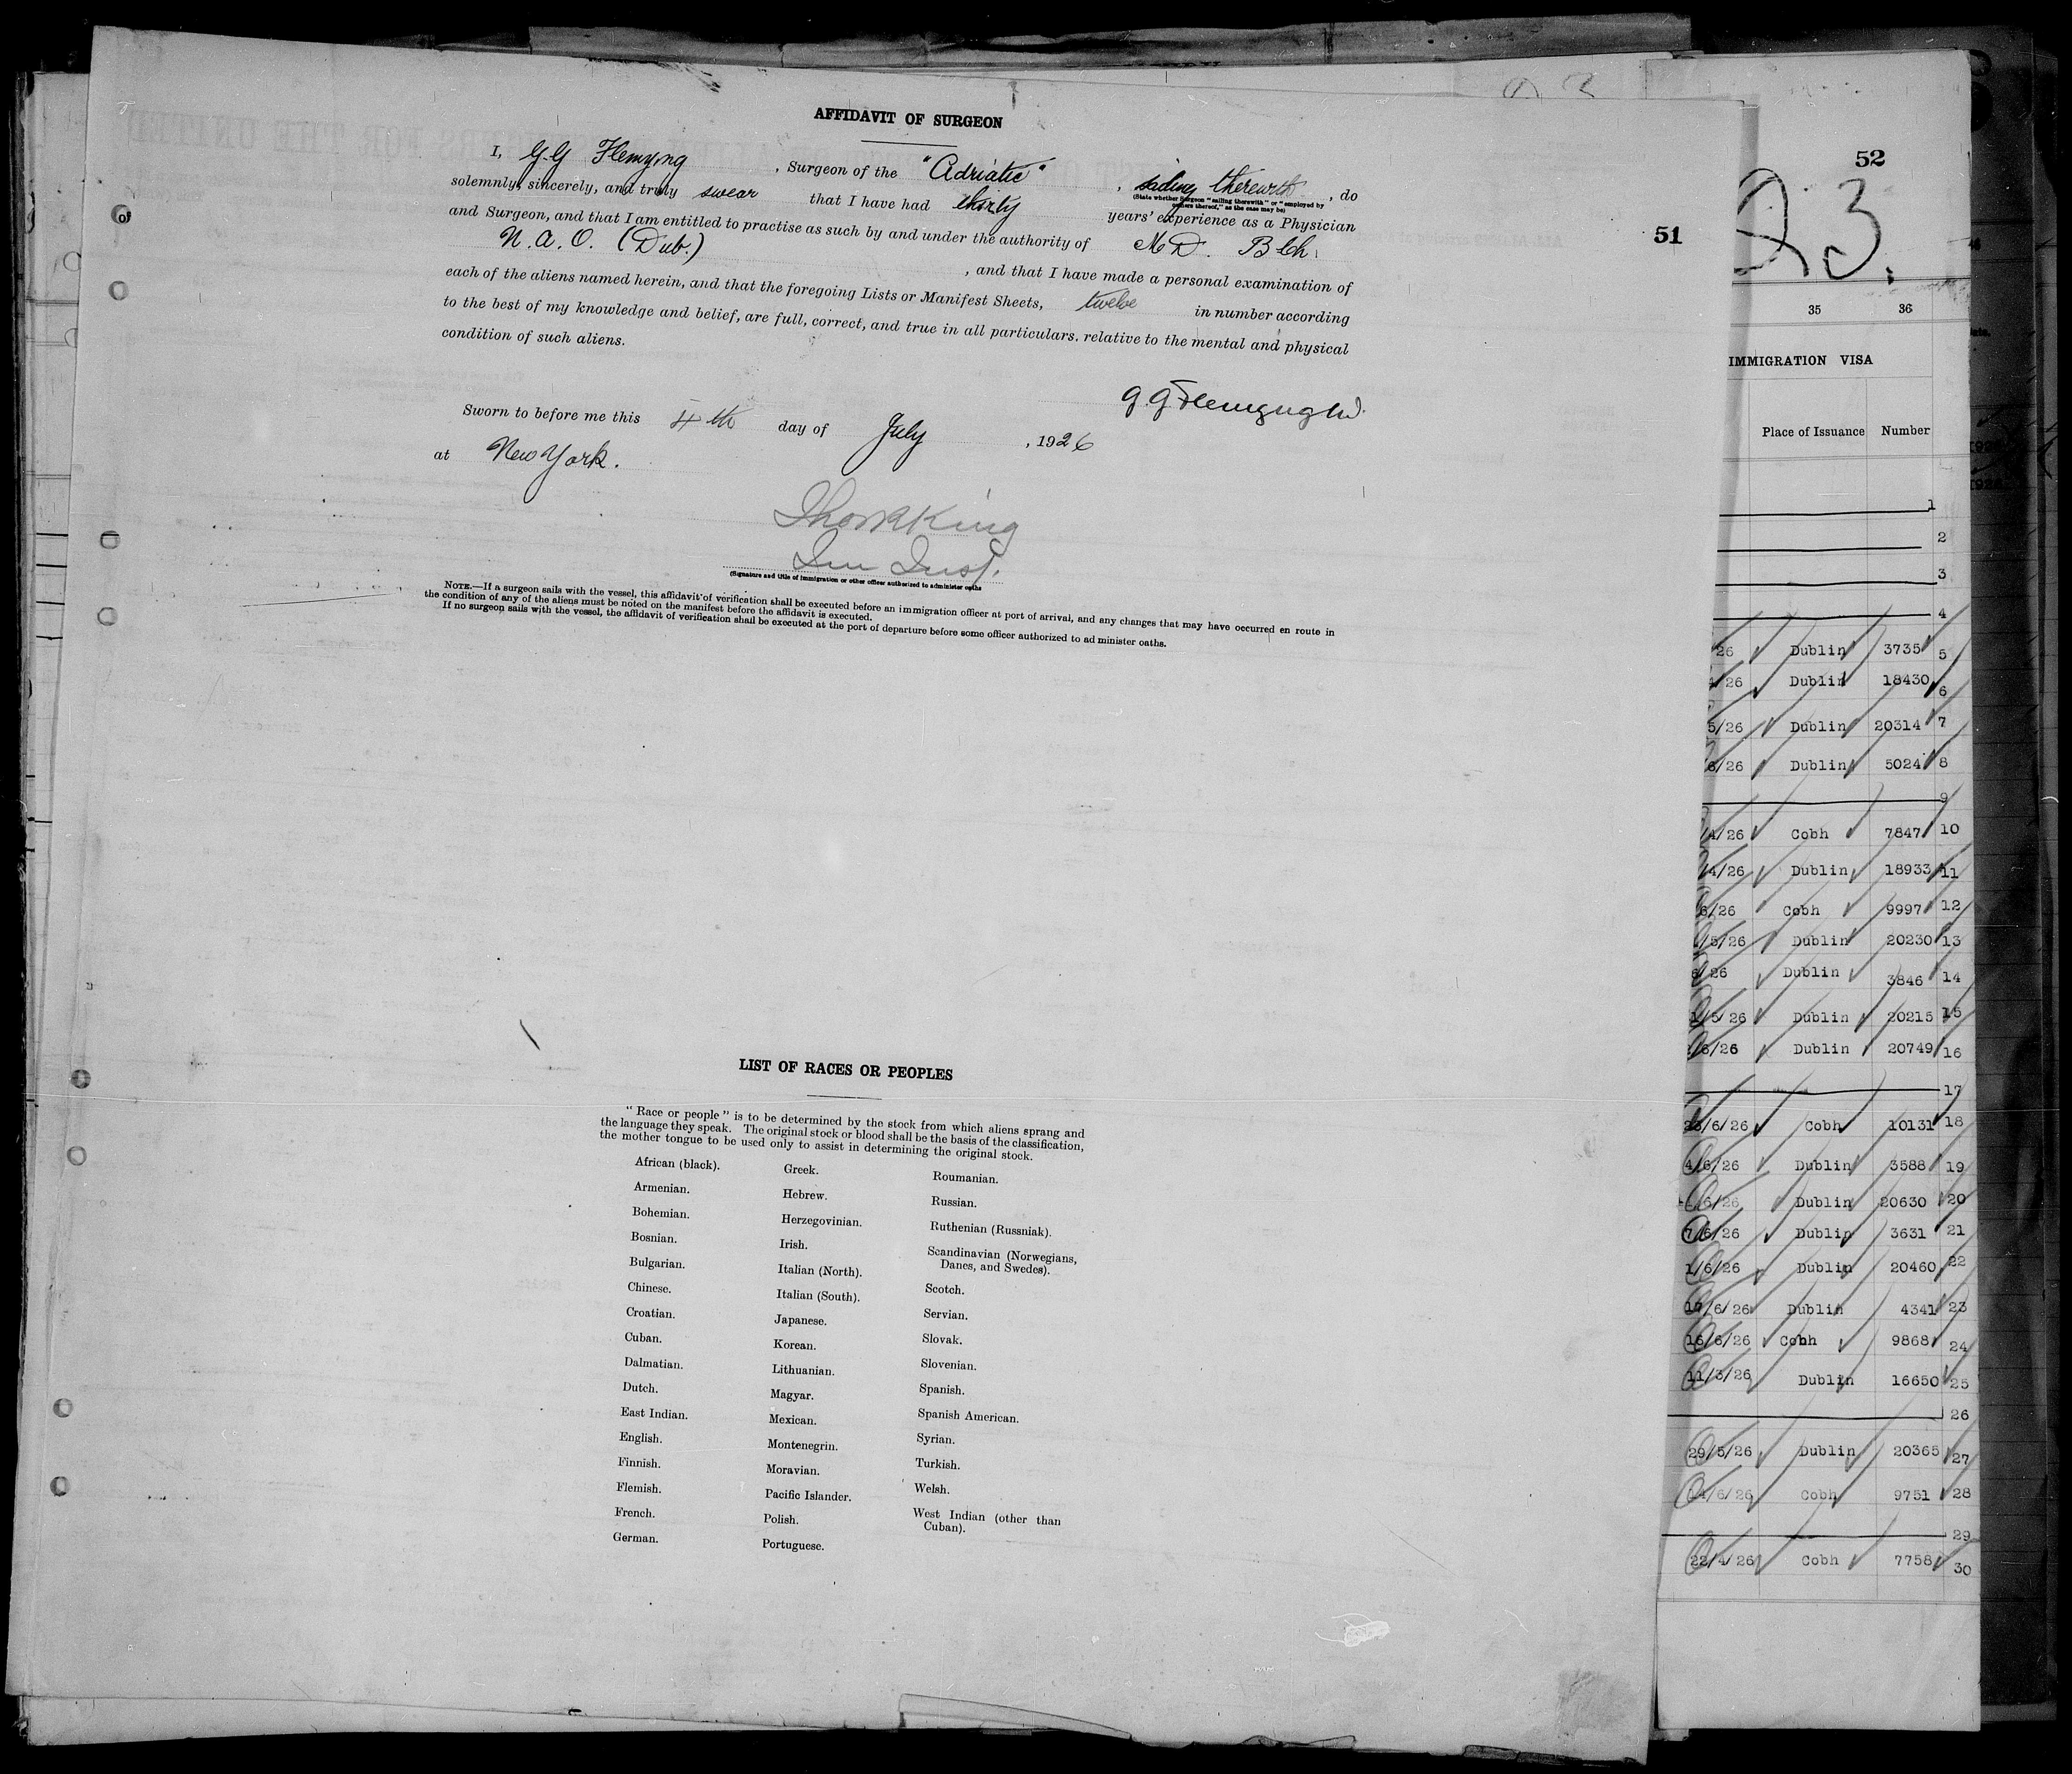 AFFIDAVIT OF SURGEON
I, G.G Flemyng , Surgeon of the "Adriatic" , sailing therewith , do
(State whether Surgeon "sailing therewith" or "employed by
owners thereof," as the case may be)
solemnly, sincerely, and truly swear that I have had thirty years' experience as a Physician
and Surgeon, and that I am entitled to practise as such by and under the authority of M D. B Ch.
N. A. O. (Dub.) , and that I have made a personal examination of
each of the aliens named herein, and that the foregoing Lists or Manifest Sheets, twelve in number according
to the best of my knowledge and belief, are full, correct, and true in all particulars. relative to the mental and physical
condition of such aliens.
Sworn to before me this 4th day of July , 1926
at New York.
King
Imm Insp.
(Signature and title of immigration or other officer authorized to administer oaths
NOTE.—If a surgeon sails with the vessel, this affidavit of verification shall be executed before an immigration officer at port of arrival, and any changes that may have occurred en route in
the condition of any of the aliens must be noted on the manifest before the affidavit is executed.
If no surgeon sails with the vessel, the affidavit of verification shall be executed at the port of departure before some officer authorized to ad minister oaths.
LIST OF RACES OR PEOPLES
"Race or people" is to be determined by the stock from which aliens sprang and
the language they speak. The original stock or blood shall be the basis of the classification,
the mother tongue to be used only to assist in determining the original stock.
African (black).
Armenian.
Bohemian.
Bosnian.
Bulgarian.
Chinese.
Croatian.
Cuban.
Dalmatian.
Dutch.
East Indian.
English.
Finnish.
Flemish.
French.
German.
Greek.
Hebrew.
Herzegovinian.
Irish.
Italian (North).
Italian (South).
Japanese.
Korean.
Lithuanian.
Magyar.
Mexican.
Montenegrin.
Moravian.
Pacific Islander.
Polish.
Portuguese.
Roumanian.
Russian.
Ruthenian (Russniak).
Scandinavian (Norwegians,
Danes, and Swedes).
Scotch.
Servian.
Slovak.
Slovenian.
Spanish.
Spanish American.
Syrian.
Turkish.
Welsh.
West Indian (other than
Cuban).
51
52
23.
35 36
IMMIGRATION VISA
Place of Issuance Number
1
2
3
4
26 Dublin 3735 5
/26 Dublin 18430 6
5/26 Dublin 20314 7
6/26 Dublin 5024 8
9
4/26 Cobh 7847 10
4/26 Dublin 18933 11
6/26 Cobh 9997 12
/5/26 Dublin 20230 13
6/26 Dublin 3846 14
/5/26 Dublin 20215 15
/6/26 Dublin 20749 16
17
23/6/26 Cobh 10131 18
4/6/26 Dublin 3588 19
/6/26 Dublin 20630 20
7/6/26 Dublin 3631 21
1/6/26 Dublin 20460 22
17/6/26 Dublin 4341 23
16/6/26 Cobh 9868 24
11/3/26 Dublin 16650 25
26
29/5/26 Dublin 20365 27
14/6/26 Cobh 9751 28
29
22/4/26 Cobh 7758 30